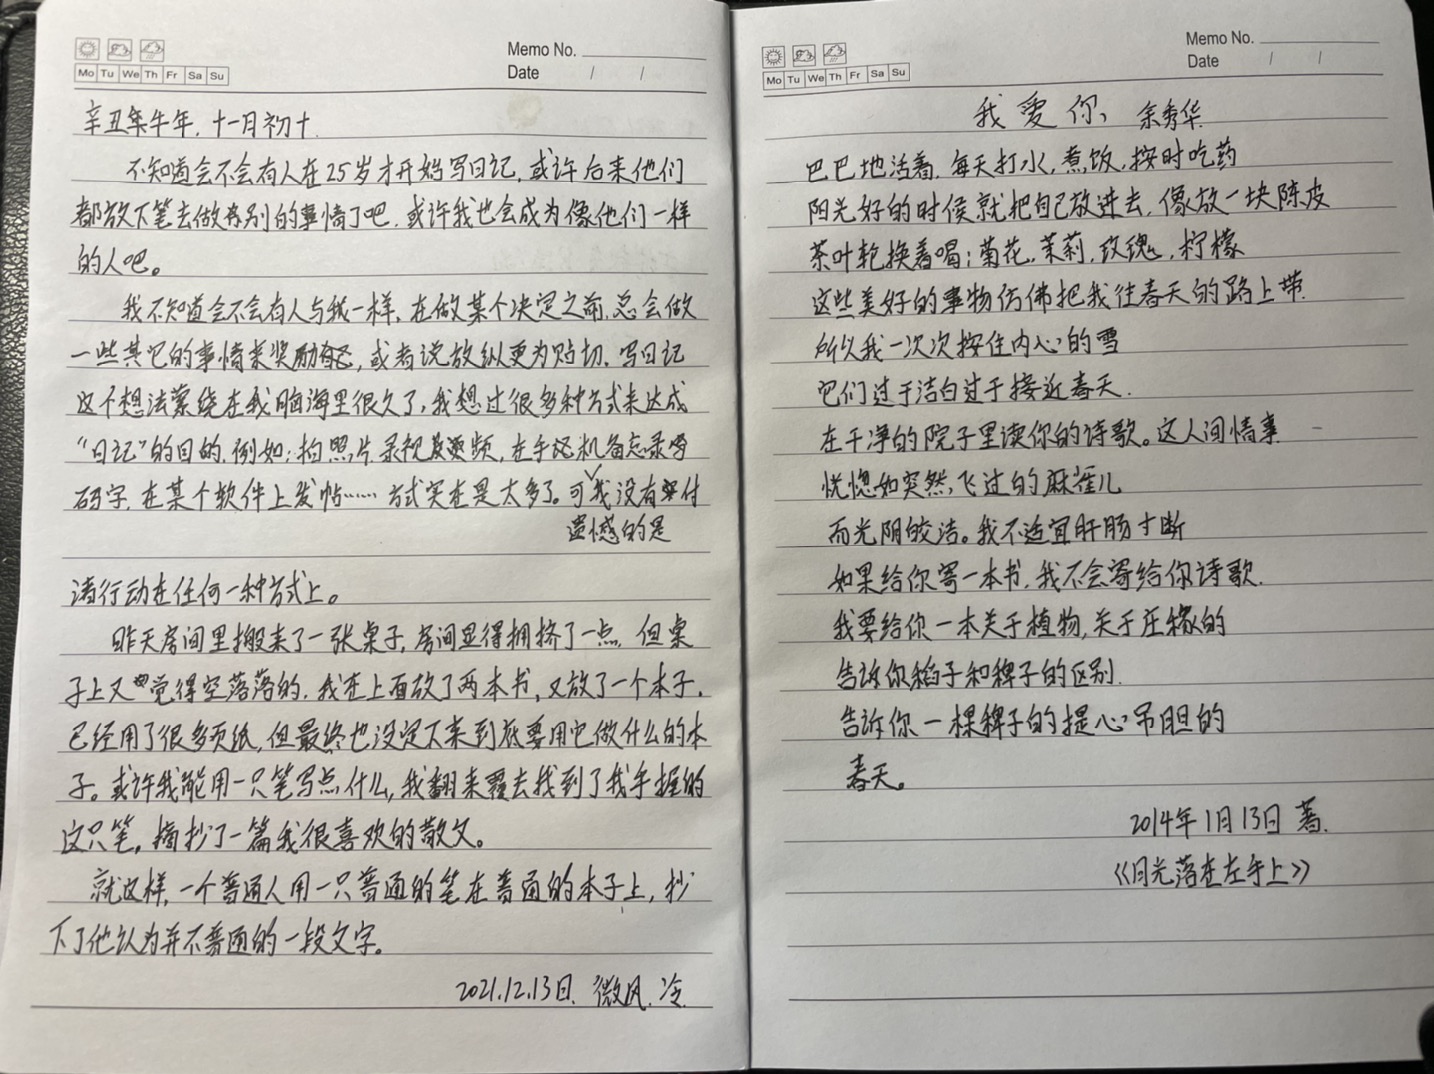 Memo No.
Date / /
Mo Tu We Th Fr Sa Su
辛丑年牛年,十一月初十
不知道会不会有人在25岁才开始写日记,或许后来他们
都放下笔去做别的事情了吧,或许我也会成为像他们一样
的人吧。
我不知道会不会有人与我一样,在做某个决定之前,总会做
一些其它的事情来奖励自己,或者说放纵更为贴切,写日记
这个想法萦绕在我脑海里很久了,我想过很多种方式来达成
“日记”的目的,例如:拍照片录视频,在手机备忘录
码字,在某个软件上发帖……方式实在是太多了。可我没有付
遗憾的是
诸行动在任何一种方式上。
昨天房间里搬来了一张桌子,房间显得拥挤了一点,但桌
子上又觉得空落落的,我在上面放了两本书,又放了一个本子,
已经用了很多页纸,但最终也没定下来到底要用它做什么的本
子。或许我能用一只笔写点什么,我翻来覆去找到了我手握的
这只笔,摘抄了一篇我很喜欢的散文。
就这样,一个普通人用一只普通的笔在普通的本子上,抄
下了他认为并不普通的一段文字。
2021.12.13日,微风,冷
Memo No.
Date / /
Mo Tu We Th Fr Sa Su
我爱你、余秀华
巴巴地活着,每天打水,煮饭,按时吃药
阳光好的时候就把自己放进去,像放一块陈皮
茶叶轮换着喝:菊花,茉莉,玫瑰,柠檬
这些美好的事物仿佛把我往春天的路上带
所以我一次次按住内心的雪
它们过于洁白过于接近春天.
在干净的院子里读你的诗歌。这人间情事
恍惚如突然飞过的麻雀儿
而光阴皎洁。我不适宜肝肠寸断
如果给你寄一本书,我不会寄给你诗歌.
我要给你一本关于植物,关于庄稼的
告诉你稻子和稗子的区别.
告诉你一棵稗子的提心吊胆的
春天。
2014年1月13日 著.
《月光落在左手上》